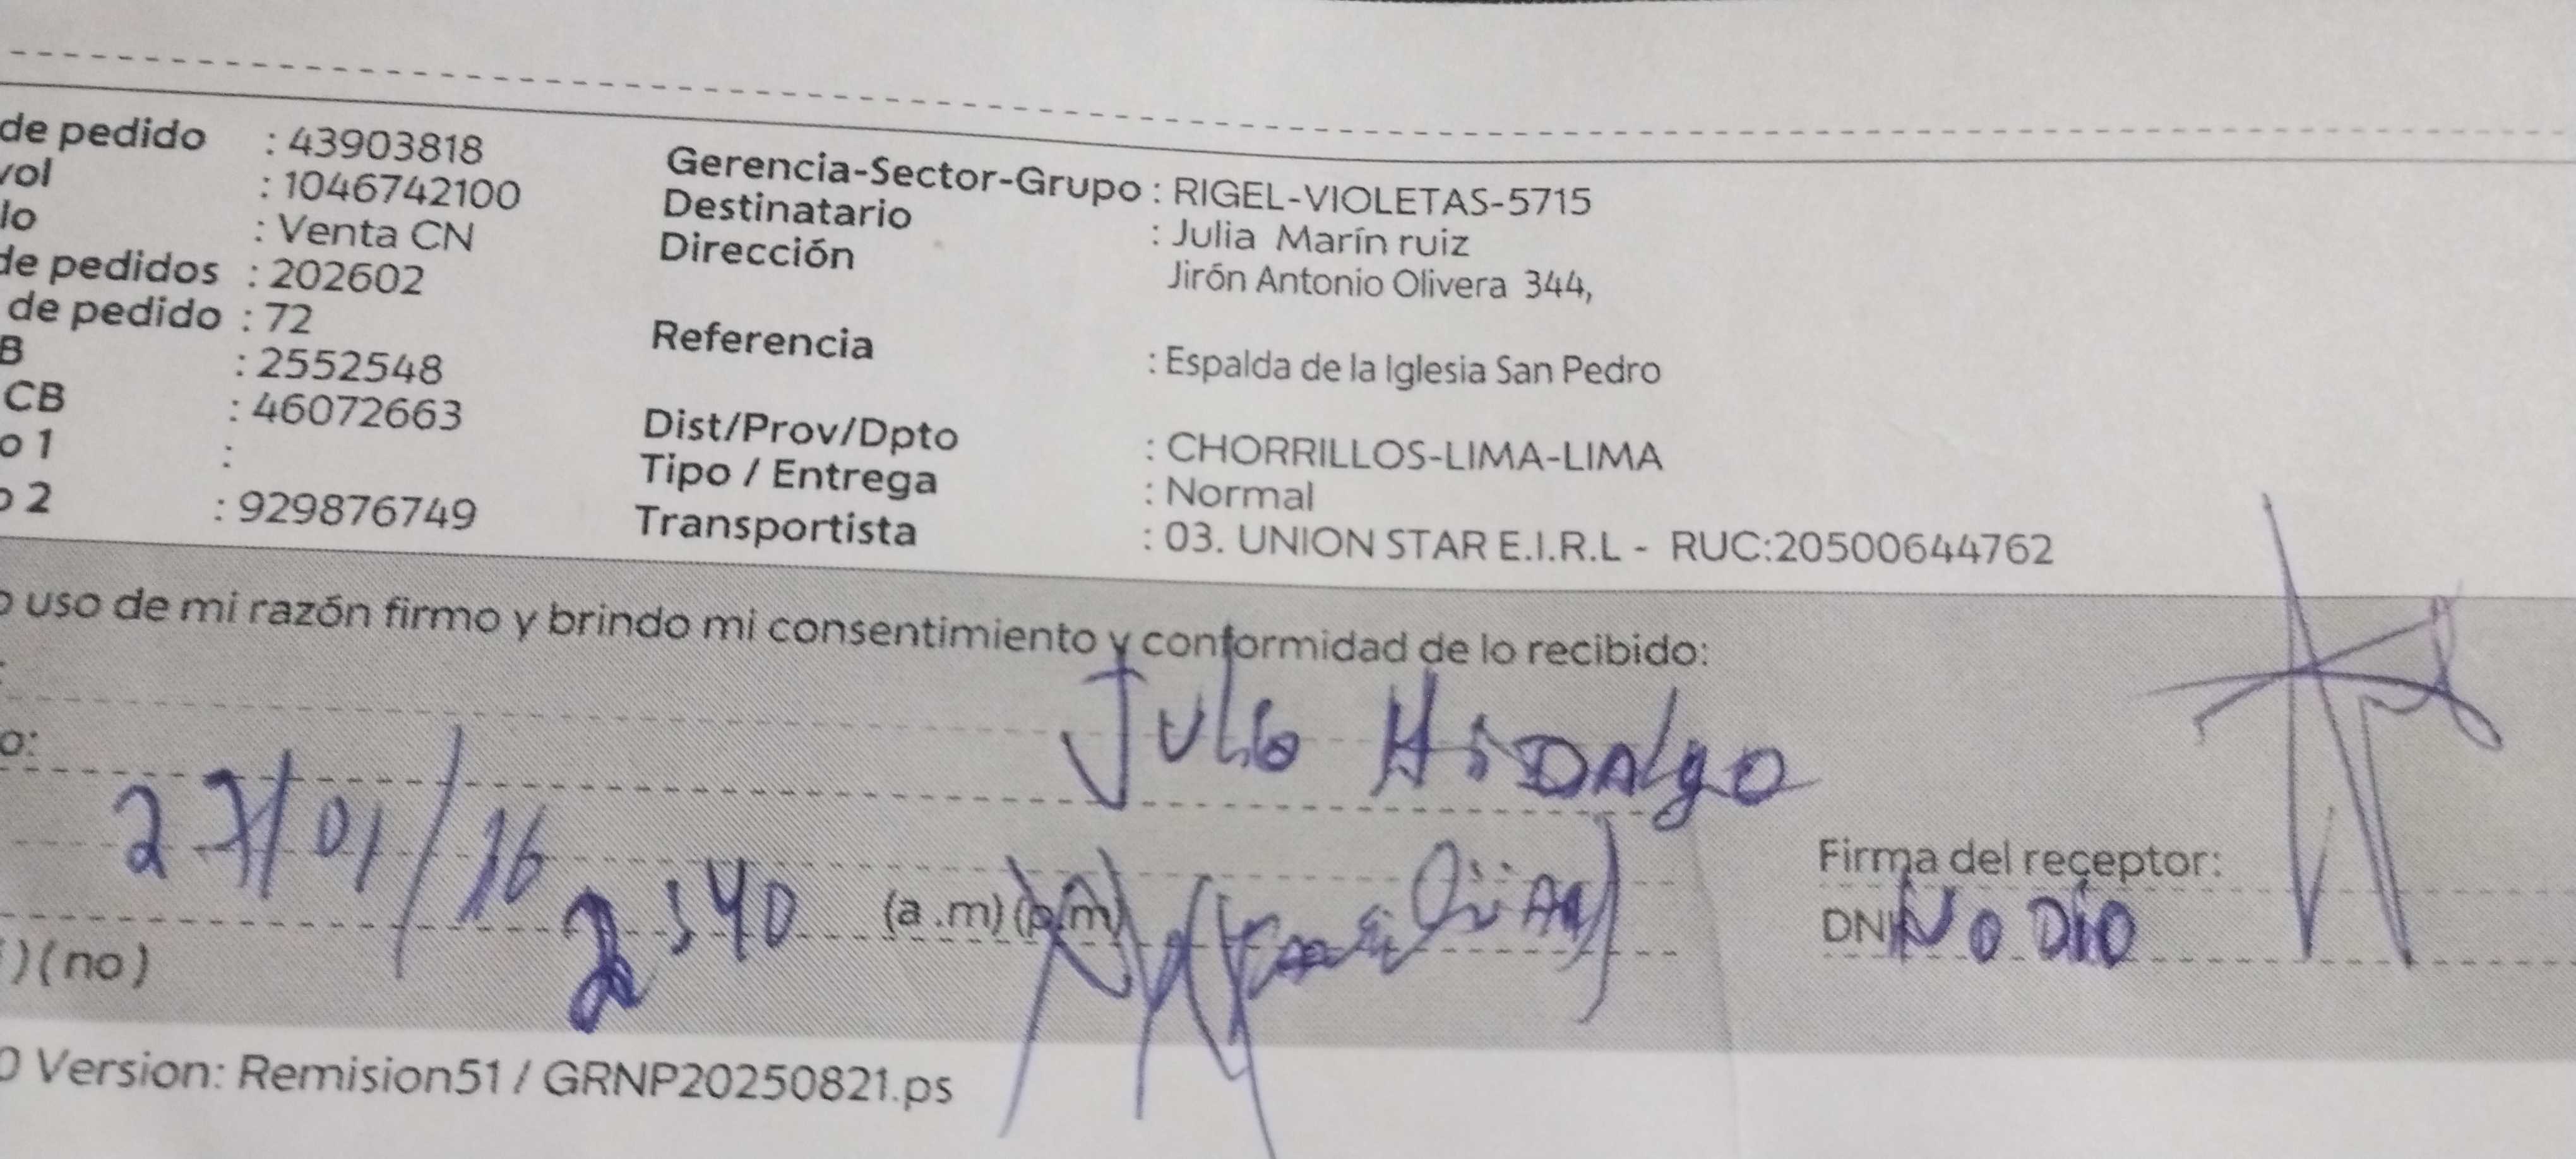 de pedido : 43903818
vol : 1046742100
lo : Venta CN
de pedidos : 202602
de pedido : 72
B : 2552548
CB : 46072663
o 1 :
o 2 : 929876749
Gerencia-Sector-Grupo : RIGEL-VIOLETAS-5715
Destinatario : Julia Marín ruiz
Dirección Jirón Antonio Olivera 344,
Referencia : Espalda de la Iglesia San Pedro
Dist/Prov/Dpto : CHORRILLOS-LIMA-LIMA
Tipo / Entrega : Normal
Transportista : 03. UNION STAR E.I.R.L - RUC:20500644762
o uso de mi razón firmo y brindo mi consentimiento y conformidad de lo recibido:
Julio HiDAlgo
o:
27/01/ 2:40 (a .m) (p.m)
Firma del receptor:
DNI No Dio
) (no)
0 Version: Remision51 / GRNP20250821.ps